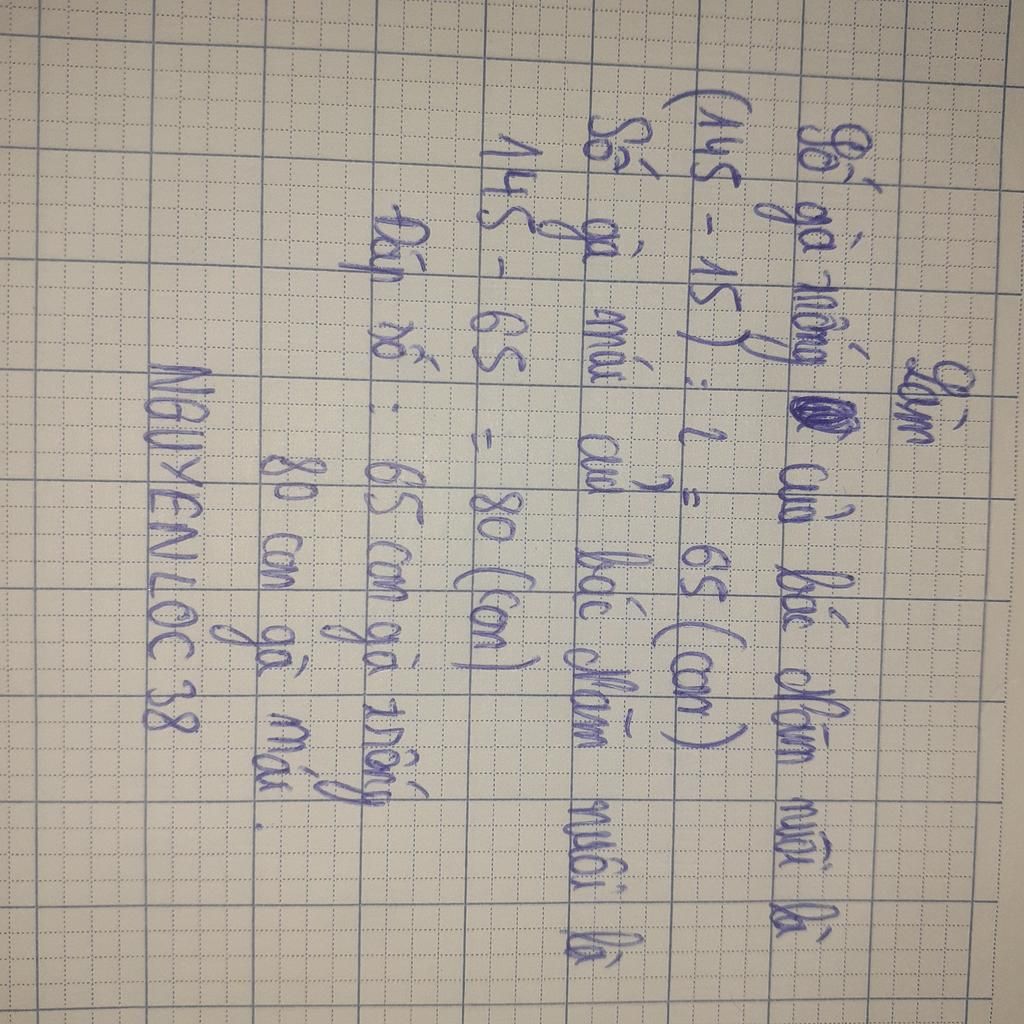 Giải
Số gà trống của bác Năm nuôi là
(145 - 15) : 2 = 65 (con)
Số gà mái của bác Năm nuôi là
145 - 65 = 80 (con)
Đáp số : 65 con gà trống
80 con gà mái.
NGUYENLOC 38